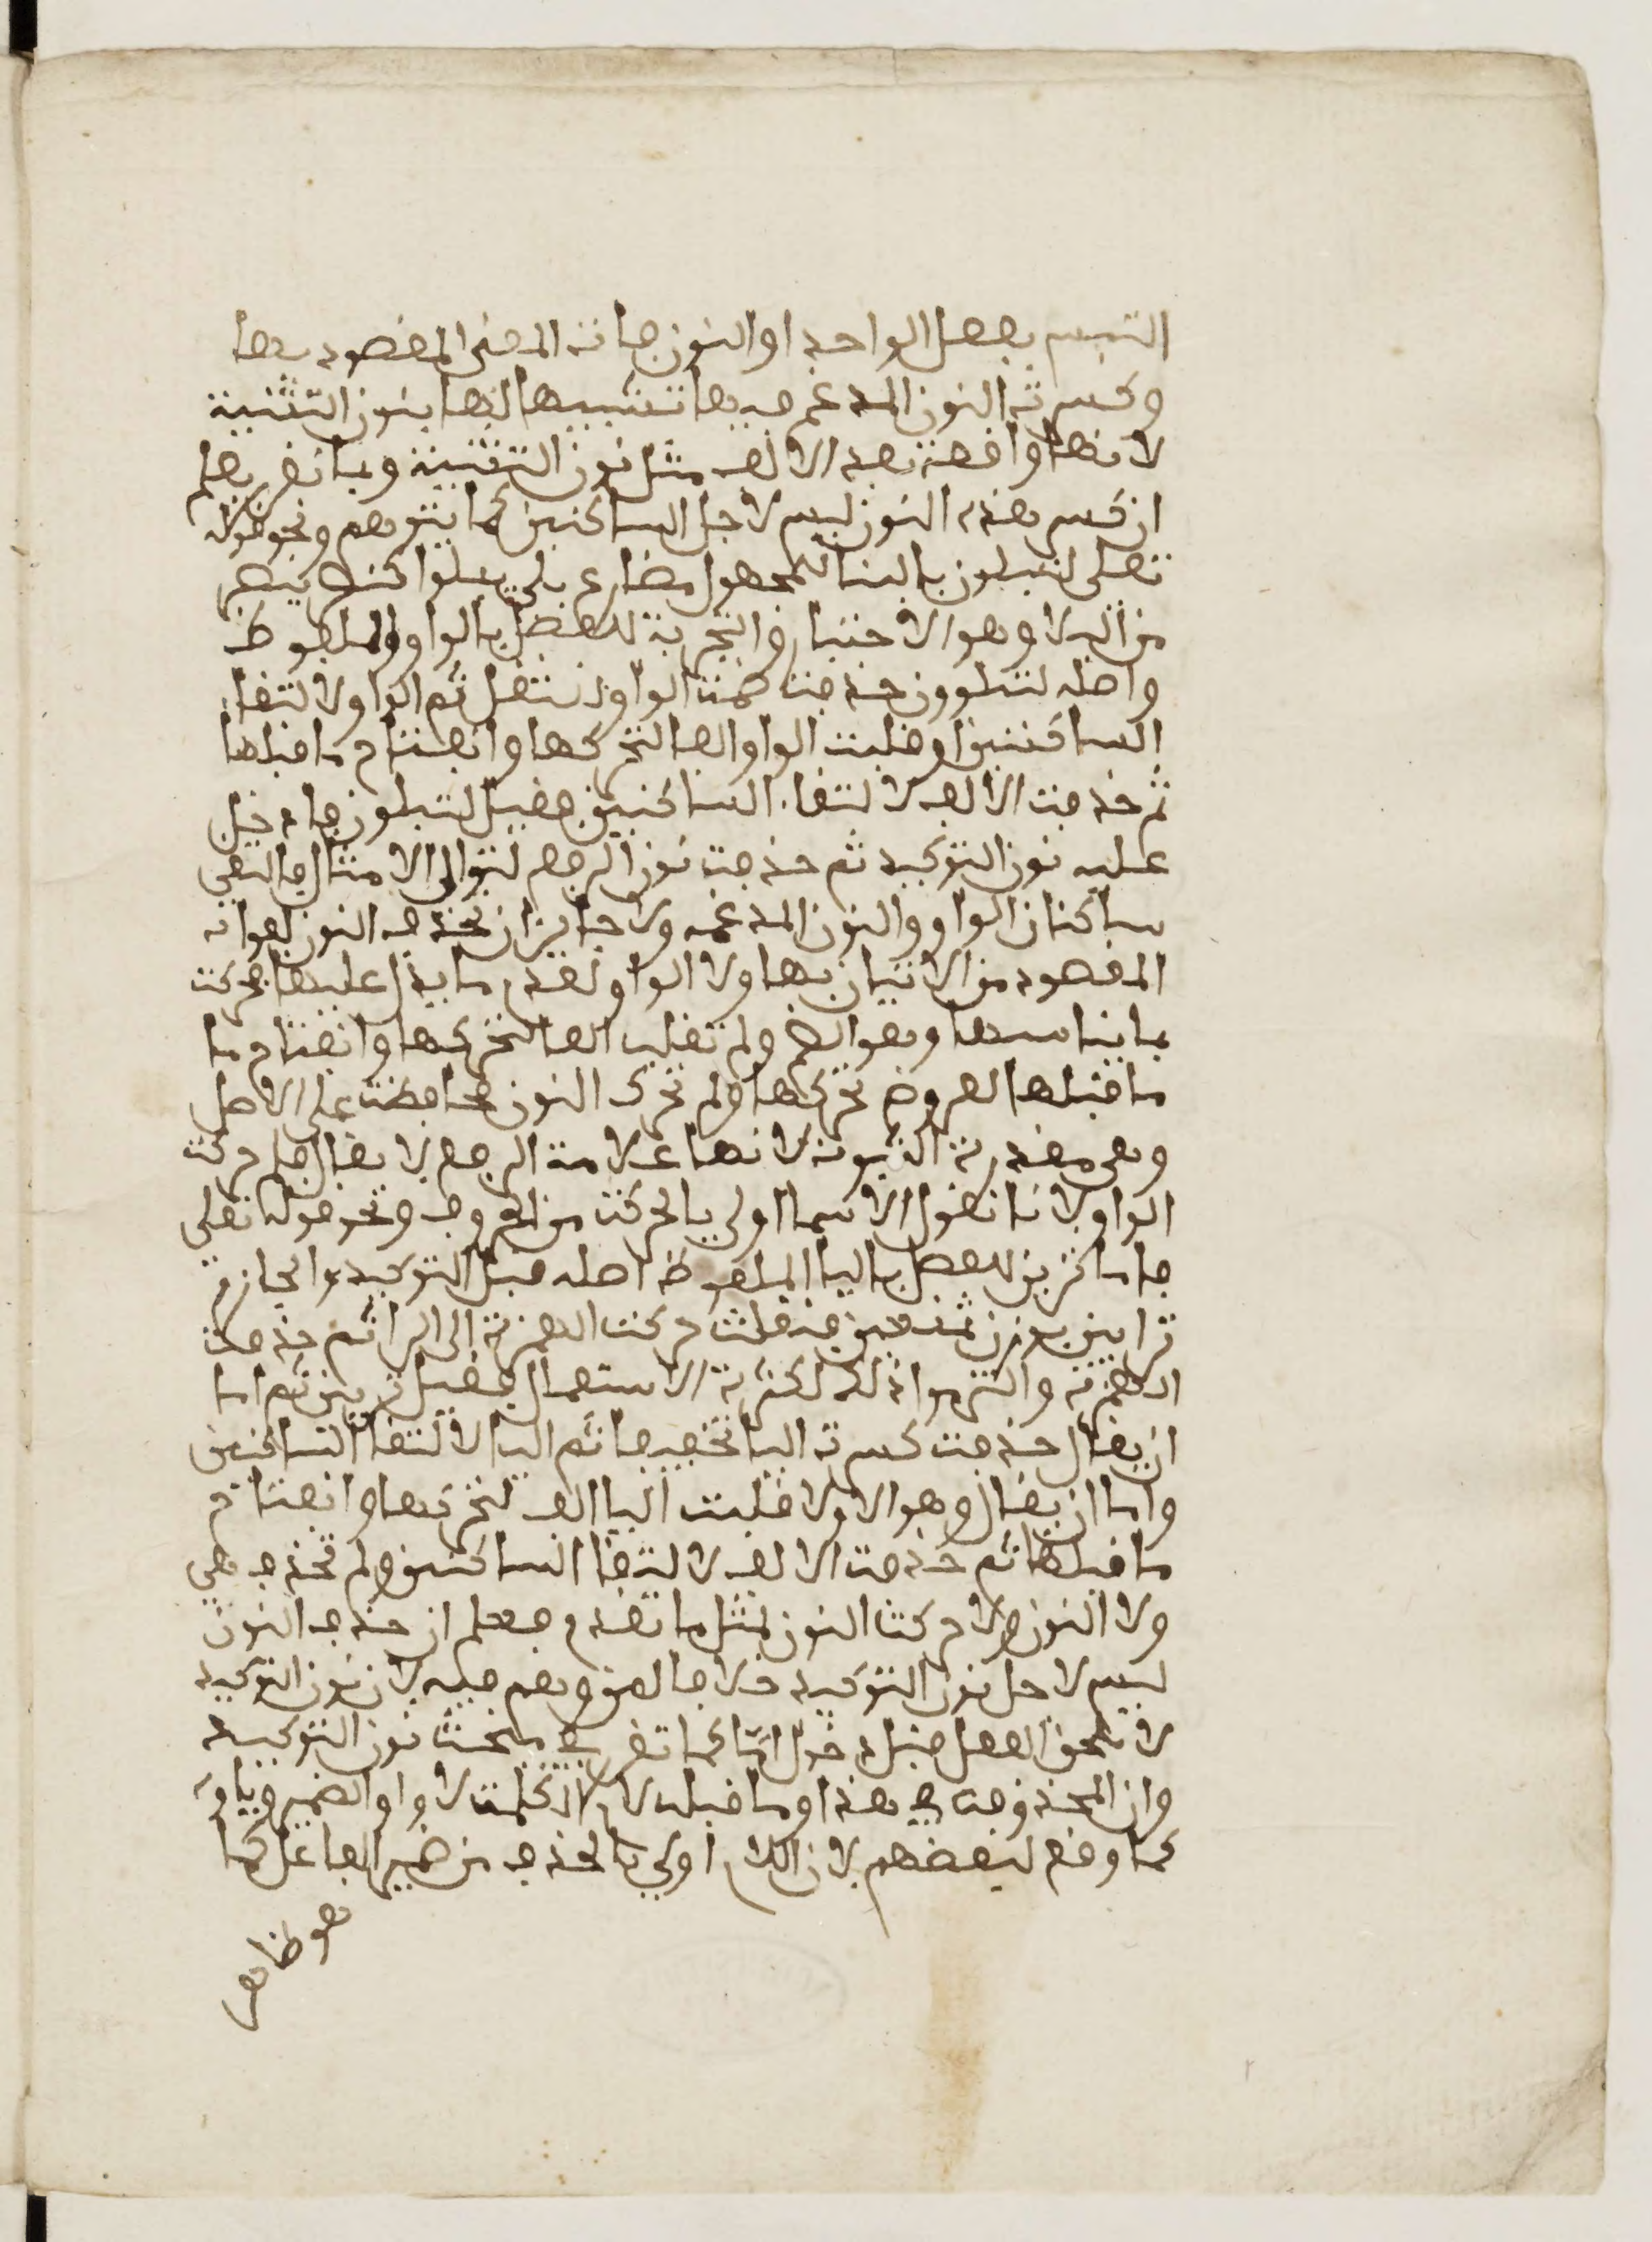 التبس بفعل الواحد او النون فاته المعنى المقصود بها
وكسرة النون المدغم فيها تشبيها لها بنون التثنية
لانها واقعة بعد الالف مثل نون التثنية وبما تقرر يعلم
ان كسر هذه النون ليس لاجل الساكنين كما يتوهم ونحو قوله
تعلى لتبلون بالبنا للمجهول مضارع بلي يبلوا كنصر ينصر
من البلا وهو الاختبار والتجربة للفضل بالواو والملفوظ
واصله لتبلوون حذفت ضمت الواو لاستثقل ثم الواو لالتقا
الساكنين او قلبت الواو الفا لتحركها وانفتاح ما قبلها
ثم حذفت الالف لالتقاء الساكنين فقيل لتبلون فادخل
عليه نون التوكيد ثم حذفت نون الرفع لتوالى الامثال فالتقى
ساكنان الواو والنون المدغمه ولا جايز ان تحذف النون لفوات
المقصود من الاتيان بها ولا الواو لعدم ما يدل عليها فحركت
بما يناسبها وهو الضم ولم تقلب الفا لتحركها وانفتاح ما
ما قبلها لعروض تحركها ولم تحرك النون محافظت على الاصل
وهي مقدرة الثبوت لانها علامة الرفع لا يقال فلم حركت
الواو لانا نقول الاسما اولى بالحركت من الحروف ونحو قوله تعلى
فاما ترين للفصل باليا الملفوظ اصله قبل التوكيد والجازم
ترايين بوزن تمنعين فنقلت حركت الهمزة الى الرا ثم حذفت
الهمزة والتزموا ذلك لكثرة الاستعمال فقيل تريين ثم اما
ان يقال حذفت كسرة اليا تخفيفا ثم اليا لالتقا الساكنين
واما ان يقال وهو الاولا قلبت اليا الف لتحركها وانفتاح
ما قبلها ثم حذفت الالف لالتقا الساكنين ولم تحذف هي
ولا النون ولا حركت النون لمثل ما تقدم فعلم ان حذف النون
ليس لاجل نون التوكيد خلافا لمن وهم فيه لان نون التوكيد
لا تلحق الفعل قبل دخول اما كما تقرر في مبحث نون التوكيد
وان المحذوفت في هذا وما قبله لام الكلمت لا واو الضمير وياوه
كما وقع لبعضهم لان اللام اولى بالحذف من ضمير الفاعل كما
هو ظاهر